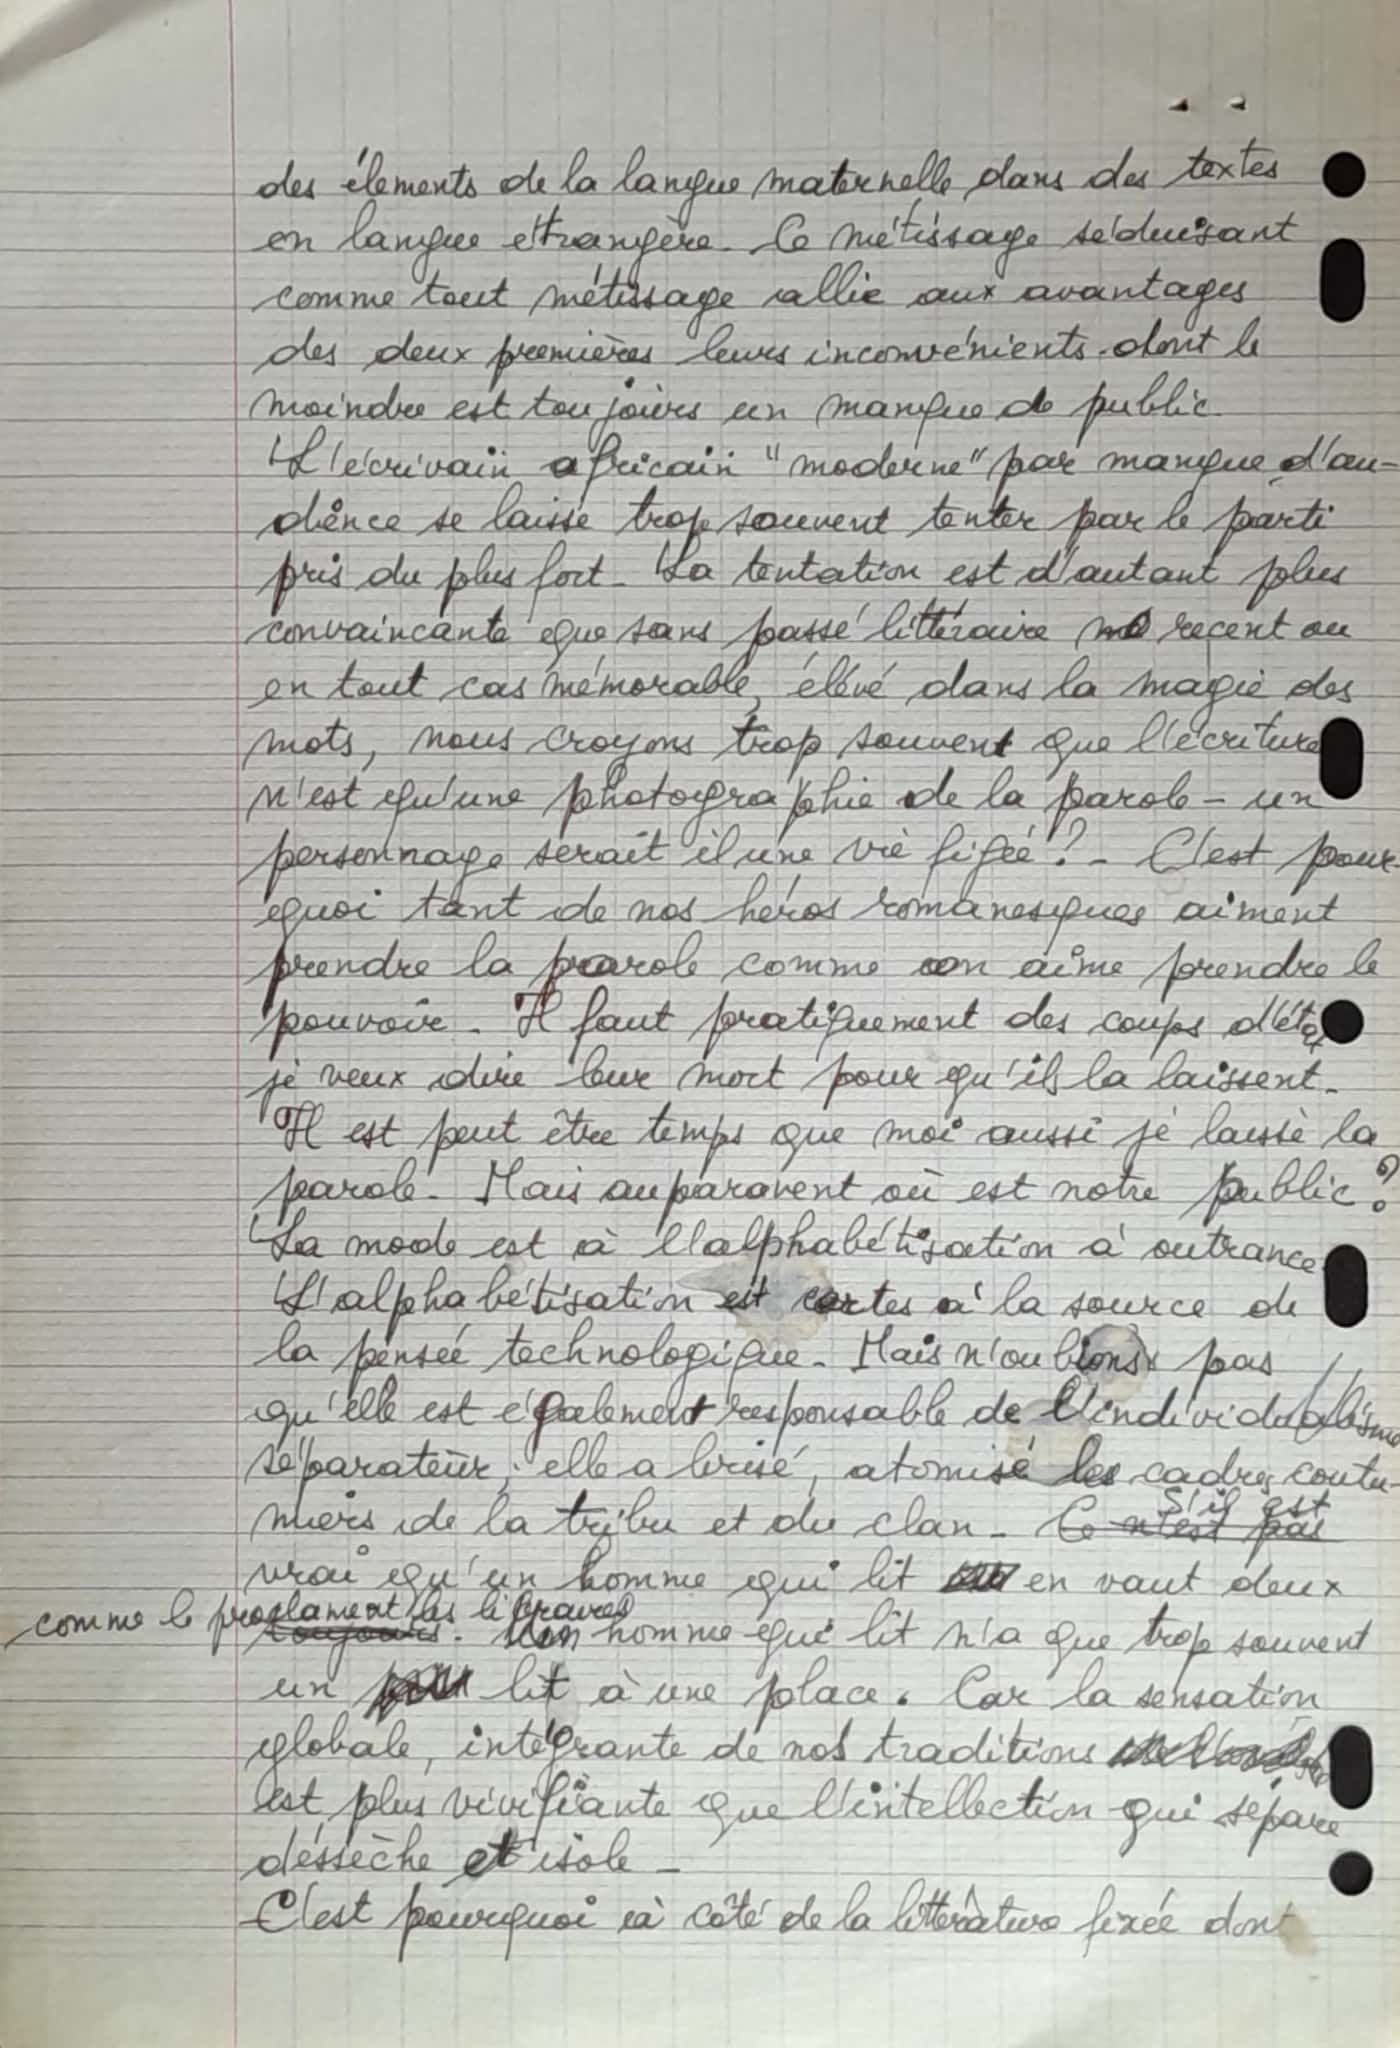 des élements de la langue maternelle dans des textes
en langue étrangère. Ce métissage séduisant
comme tout métissage allie aux avantages
des deux premières leurs inconvénients dont le
moindre est toujours un manque de public.
L'écrivain africain "moderne" par manque d'au-
dience se laisse trop souvent tenter par le parti
pris du plus fort. La tentation est d'autant plus
convaincante que sans passé littéraire recent ou
en tout cas mémorable, élévé dans la magie des
mots, nous croyons trop souvent que l'écriture
n'est qu'une photographie de la parole - un
personnage serait il une vie figée ? - C'est pour-
quoi tant de nos héros romanesques aiment
prendre la parole comme on aime prendre le
pouvoir. Il faut pratiquement des coups d'état
je veux dire leur mort pour qu'ils la laissent.
Il est peut être temps que moi aussi je laisse la
parole. Mais auparavent où est notre public ?
La mode est à l'alphabétisation à outrance
L'alphabétisation est certes à la source de
la pensée technologique. Mais n'oublions pas
qu'elle est également responsable de l'individualisme
séparateur ; elle a brisé, atomisé les cadres coutu-
miers de la tribu et du clan. Ce n'est pas S'il est
vrai qu'un homme qui lit en vaut deux
comme le proclament les libraires toujours. Un homme qui lit n'a que trop souvent
un lit à une place. Car la sensation
globale, intégrante de nos traditions
est plus vivifiante que l'intellection qui sépare
déssèche et isole -
C'est pourquoi à côté de la littérature fixée dont